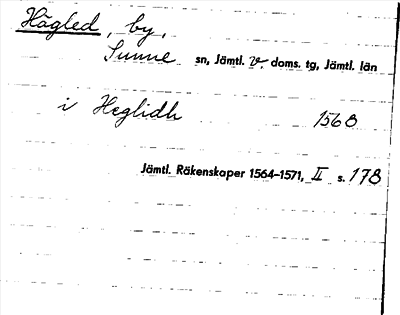 Hägled, by,
Sunne sn, Jämtl. v. doms. tg, Jämtl. län
i Heglidh 1568
Jämtl. Räkenskaper 1564-1571, II s. 178